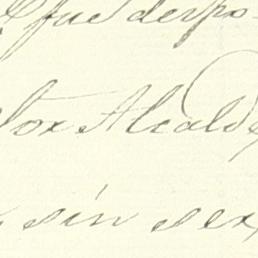 fue derpo-
tor Alcalde
sin ser